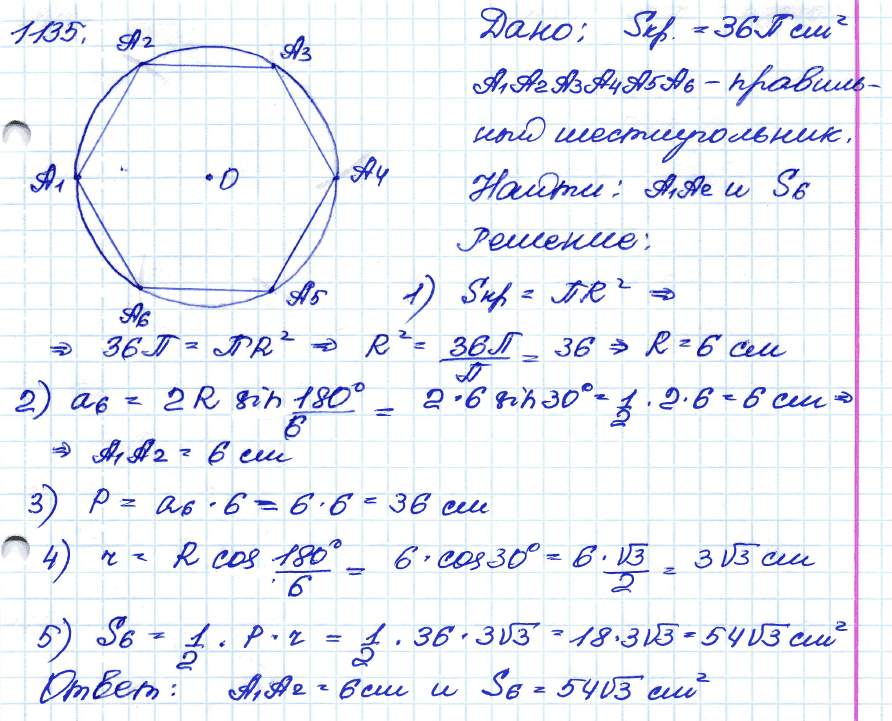 1135.
A2
A3
A1
O
A4
A6
A5
Дано: Sкр. = 36π см²
A1A2A3A4A5A6 – правиль-
ный шестиугольник.
Найти: A1A2 и S6
Решение:
1) Sкр = πR² ⇒
⇒ 36π = πR² ⇒ R² = 36π/π = 36 ⇒ R = 6 см
2) a6 = 2R sin 180°/6 = 2·6 sin 30° = 1/2 · 2·6 = 6 см ⇒
⇒ A1A2 = 6 см
3) P = a6 · 6 = 6·6 = 36 см
4) r = R cos 180°/6 = 6·cos 30° = 6·√3/2 = 3√3 см
5) S6 = 1/2 · P · r = 1/2 · 36 · 3√3 = 18·3√3 = 54√3 см²
Ответ: A1A2 = 6 см и S6 = 54√3 см²